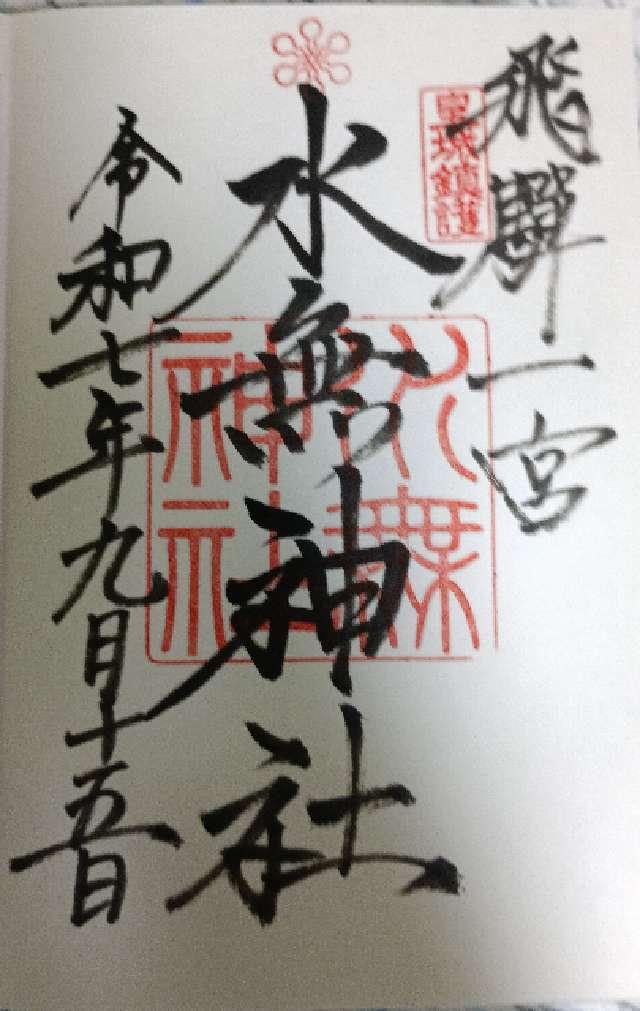 飛驒一宮
鎮護
水無神社
水無神社
令和七年九月十五日